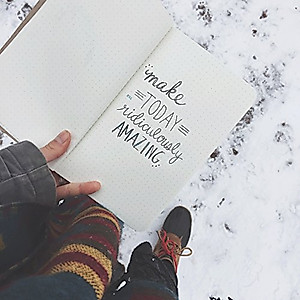 make
TODAY
ridiculously
AMAZING.